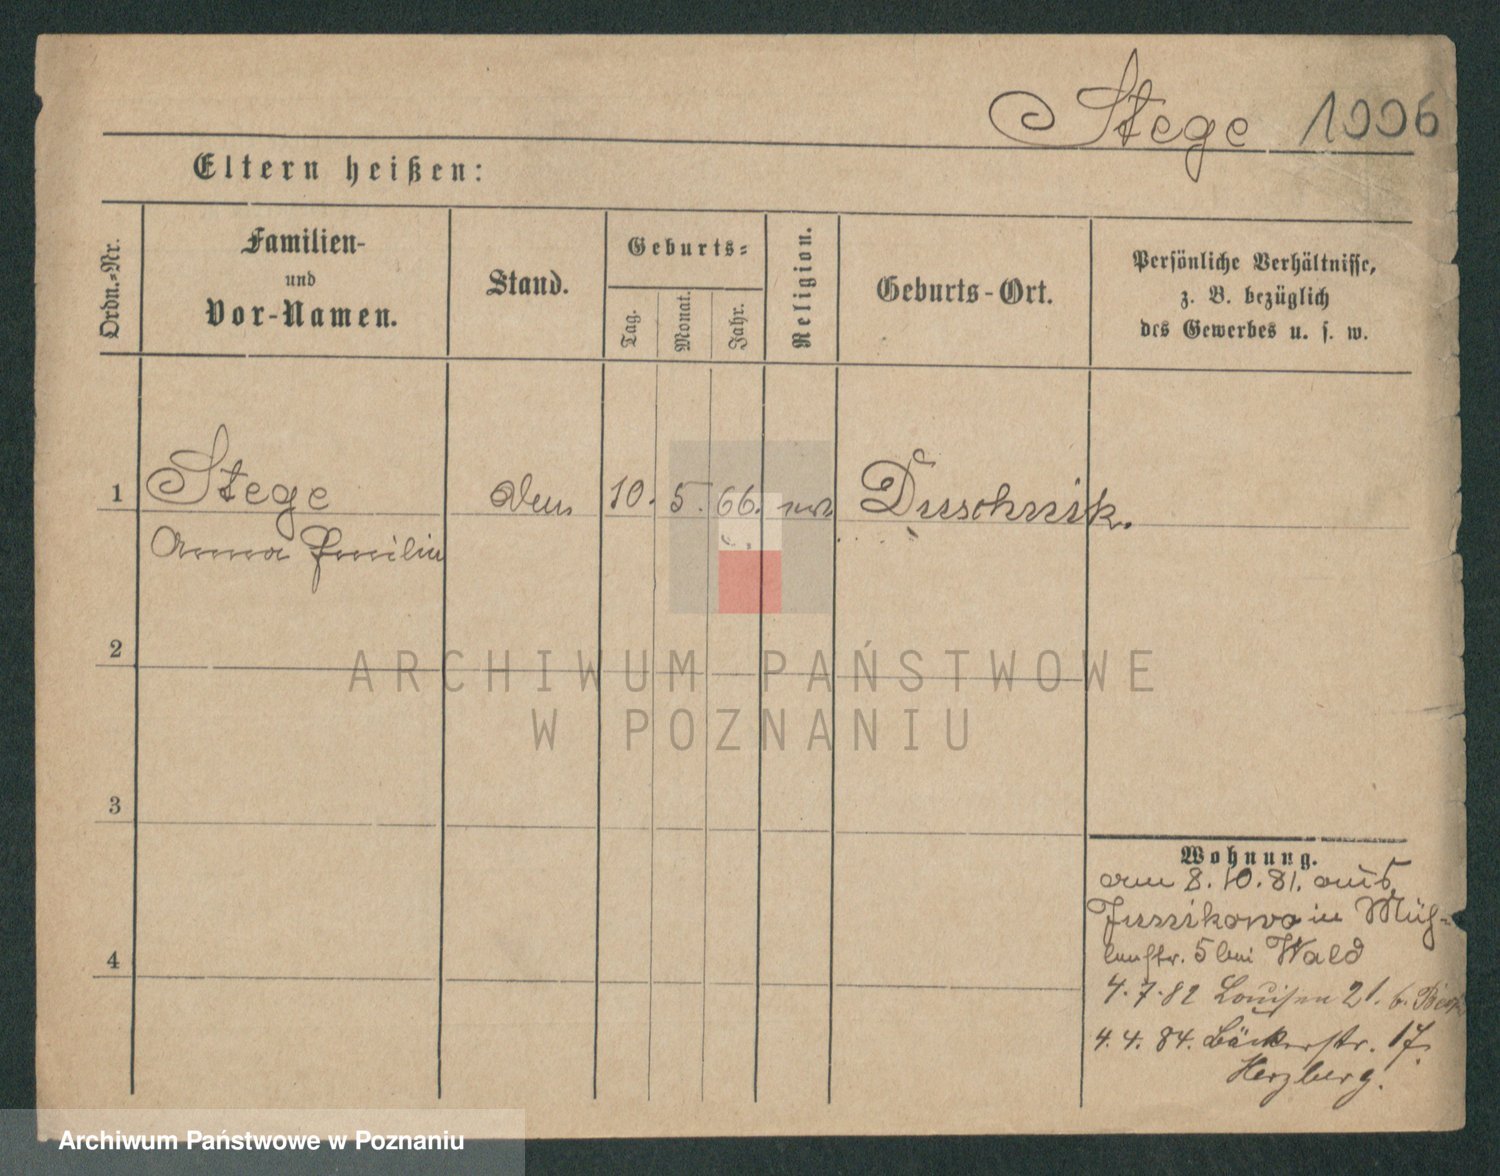 Stege 1006
Eltern heißen:
Ordn.-Nr.
Familien-
und
Vor-Namen.
Stand.
Geburts-
Tag.
Monat.
Jahr.
Religion.
Geburts-Ort.
Persönliche Verhältnisse,
z. B. bezüglich
des Gewerbes u. s. w.
1 Stege 10. 5. 66. Duschnik.
Anna Emilie
2
ARCHIWUM PAŃSTWOWE
W POZNANIU
3
4
Wohnung.
am 8.10.81. aus
Junikowo in Müh-
lenstr. 5 bei Wald
4.7.82 Louisen 21. b.
4.4.84. Bäckerstr. 17.
Herzberg.
Archiwum Państwowe w Poznaniu